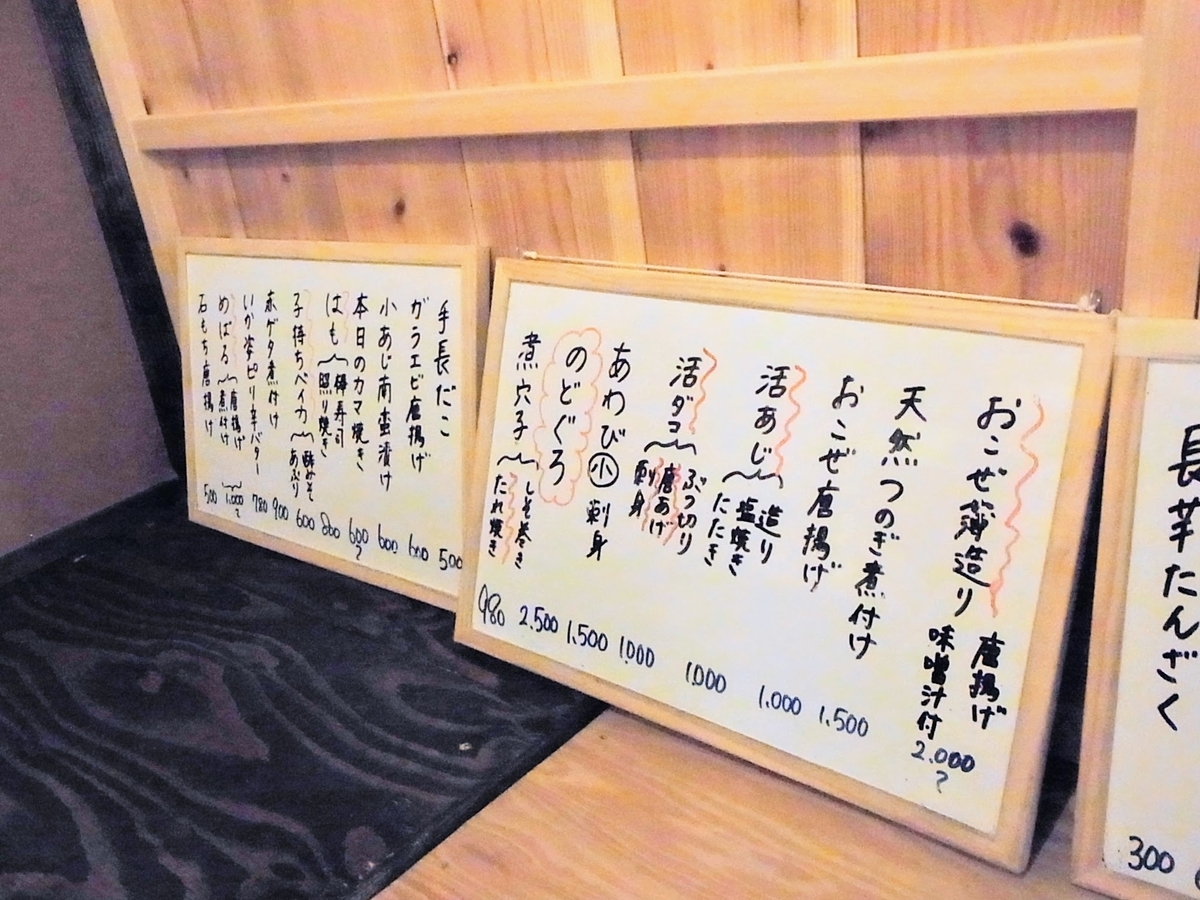 長芋たんざく
300
おこぜ薄造り 唐揚げ
味噌汁付
2.000
?
天然つのぎ煮付け
1.500
おこぜ唐揚げ
1.000
活あじ
造り
塩焼き
たたき
1.000
活ダコ
ぶつ切り
唐あげ
刺身
1.000
あわび 小 刺身
1.500
のどぐろ
2.500
煮穴子
しそ巻き
たれ焼き
980
手長だこ
500
ガラエビ唐揚げ
600
小あじ南蛮漬け
600
本日のカマ焼き
600
?
はも
棒寿司
照り焼き
800
子持ちベイカ
酢みそ
あぶり
600
赤ゲタ煮付け
900
いか姿ピリ辛バター
780
めばる
唐揚げ
煮付け
1.000
?
石もち唐揚げ
500